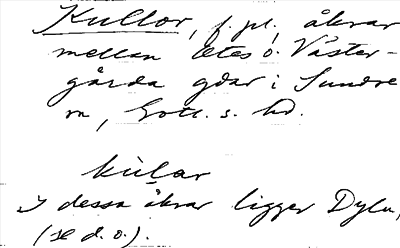 Kullor, f. pl., åkrar
mellan Utes o. Väster-
gårda gdar i Sundre
sn, Gotl. s. hd.
kùlar
I dessa åkrar ligger Dylu,
(se d. o.).